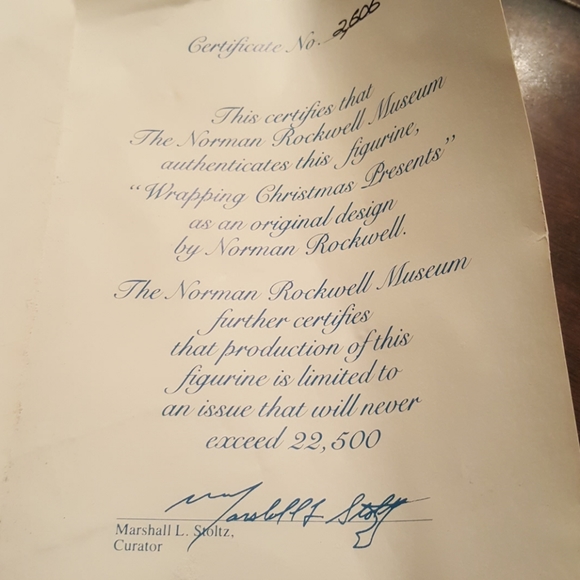 Certificate No. 2,606
This certifies that
The Norman Rockwell Museum
authenticates this figurine,
"Wrapping Christmas Presents"
as an original design
by Norman Rockwell.
The Norman Rockwell Museum
further certifies
that production of this
figurine is limited to
an issue that will never
exceed 22,500
Marshall L. Stoltz
Marshall L. Stoltz,
Curator